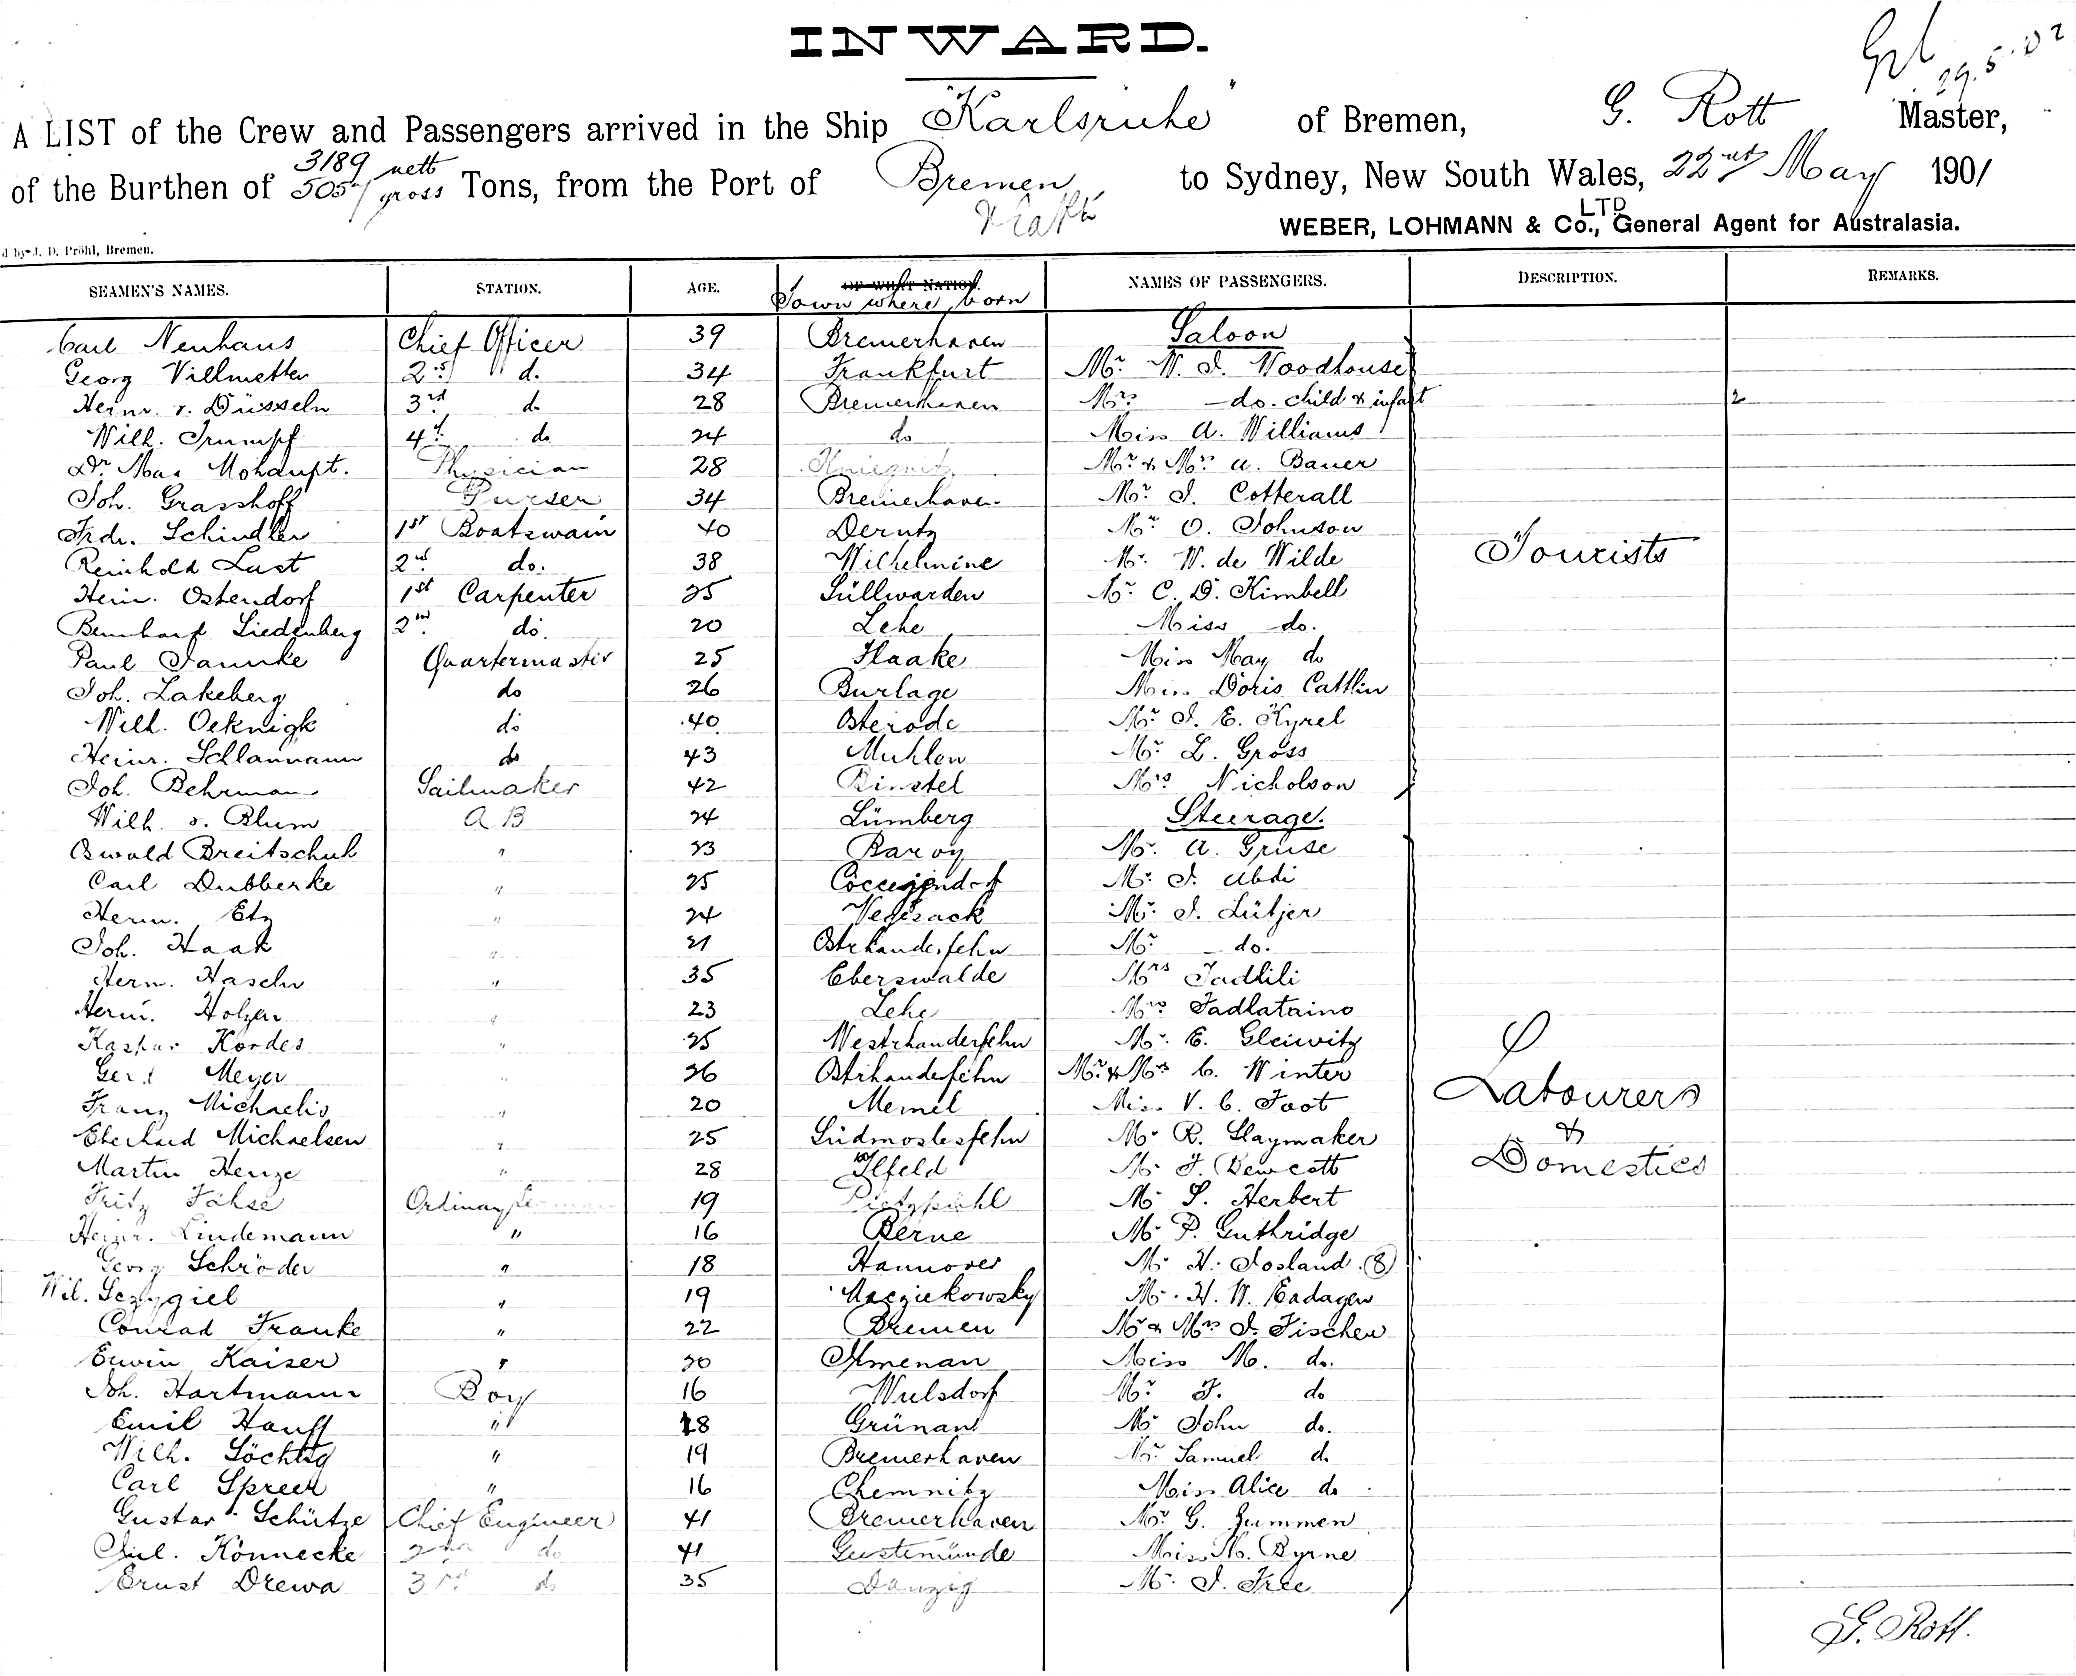 INWARD.
29.5.02
A LIST of the Crew and Passengers arrived in the Ship "Karlsruhe" of Bremen, G. Rott Master,
of the Burthen of 3189 nett 5057 gross Tons, from the Port of Bremen to Sydney, New South Wales, 22nd May 1901
WEBER, LOHMANN & Co., LTD General Agent for Australasia.
d by J. D. Pröhl, Bremen.
SEAMEN'S NAMES. STATION. AGE. OF WHAT NATION. Town where born NAMES OF PASSENGERS. DESCRIPTION. REMARKS.
Carl Neuhaus Chief Officer 39 Bremerhaven Saloon
Georg Villmetter 2nd d. 34 Frankfurt Mr. W. J. Woodhouse
Herm. v. Düsseln 3rd do 28 Bremerhaven Mrs do. child & infant 2
Wilh. Trumpf 4th do 24 do Miss A. Williams
Dr. Max Mohaupt. Physician 28 Mr & Mrs A. Bauer
Joh. Grasshoff Purser 34 Bremerhaven Mr. J. Cotterall
Frdr. Schindler 1st Boatswain 40 Derutz Mr O. Johnson
Reinhold Last 2nd do. 38 Wilhelmine Mr. W. de Wilde Tourists
Hein. Ostendorf 1st Carpenter 25 Süllwarden Mr C. D. Kimbell
Bernhard Liedenberg 2nd do. 20 Lehe Miss do.
Paul Jannke Quartermaster 25 Haake Miss May do
Joh. Lakeberg do 26 Burlage Miss Doris Cattlin
Wilh. Oeknigk do 40 Osterode Mr. J. E. Kyrel
Heinr. Schlammann do 43 Muhlen Mr. L. Gross
Joh. Behrman Sailmaker 42 Binstel Mrs Nicholson
Wilh. v. Blum A B 24 Lümberg Steerage.
Oswald Breitschuh " 23 Baroy Mr. A. Gruse
Carl Dubberke " 25 Mr. J. Abdi
Herm. Etz " 24 Vegesack Mr. J. Lütjer
Joh. Haak " 21 Ostrhauderfehn Mr. do.
Herm. Hasehn " 35 Eberswalde Mrs Tadlili
Herm. Holzen " 23 Lehe Mrs Tadlataino
Kaspar Kordes " 25 Westrhauderfehn Mr. E. Gleiwitz
Gerd Meyer " 26 Ostrhauderfehn Mr & Mrs C. Winter
Franz Michaelis " 20 Memel Miss V. C. Foot Labourers
Eberhard Michaelsen " 25 Südmoslesfehn Mr R. Slaymaker &
Martin Henze " 28 Ilfeld Mr. F. Bewcott Domestics
Fritz Fähse Ordinary Seaman 19 Pietzpuhl Mr S. Herbert
Heinr. Lindemann " 16 Berne Mr P. Guthridge
Georg Schröder " 18 Hannover Mr H. Josland (8)
Wil. Sczygiel " 19 Macziekowsky Mr. H. W. Eadagen
Conrad Franke " 22 Bremen Mr & Mrs J. Fischer
Erwin Kaiser " 20 Ilmenau Miss M. do.
Joh. Hartmann Boy 16 Wulsdorf Mr. F. do
Emil Hauff " 18 Grünau Mr John do.
Wilh. Söchtig " 19 Bremerhaven Mr. Samuel do
Carl Spreer " 16 Chemnitz Miss Alice do
Gustav Schütze Chief Engineer 41 Bremerhaven Mr G. Gummen
Jul. Könnecke 2nd do 41 Geestemünde Miss M. Byrne
Ernst Drewa 3rd do 35 Danzig Mr. J. Free
G. Rott.